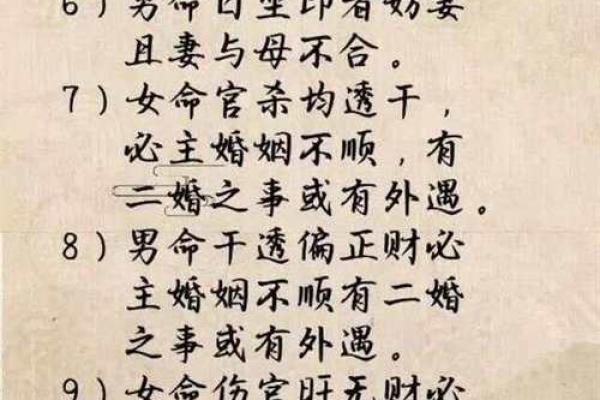 6）男命日坐印者妨妻
且妻与母不合。
7）女命官杀均透干，
必主婚姻不顺，有
二婚之事或有外遇。
8）男命干透偏正财必
主婚姻不顺有二婚
之事或有外遇。
9）女命伤官旺无财必